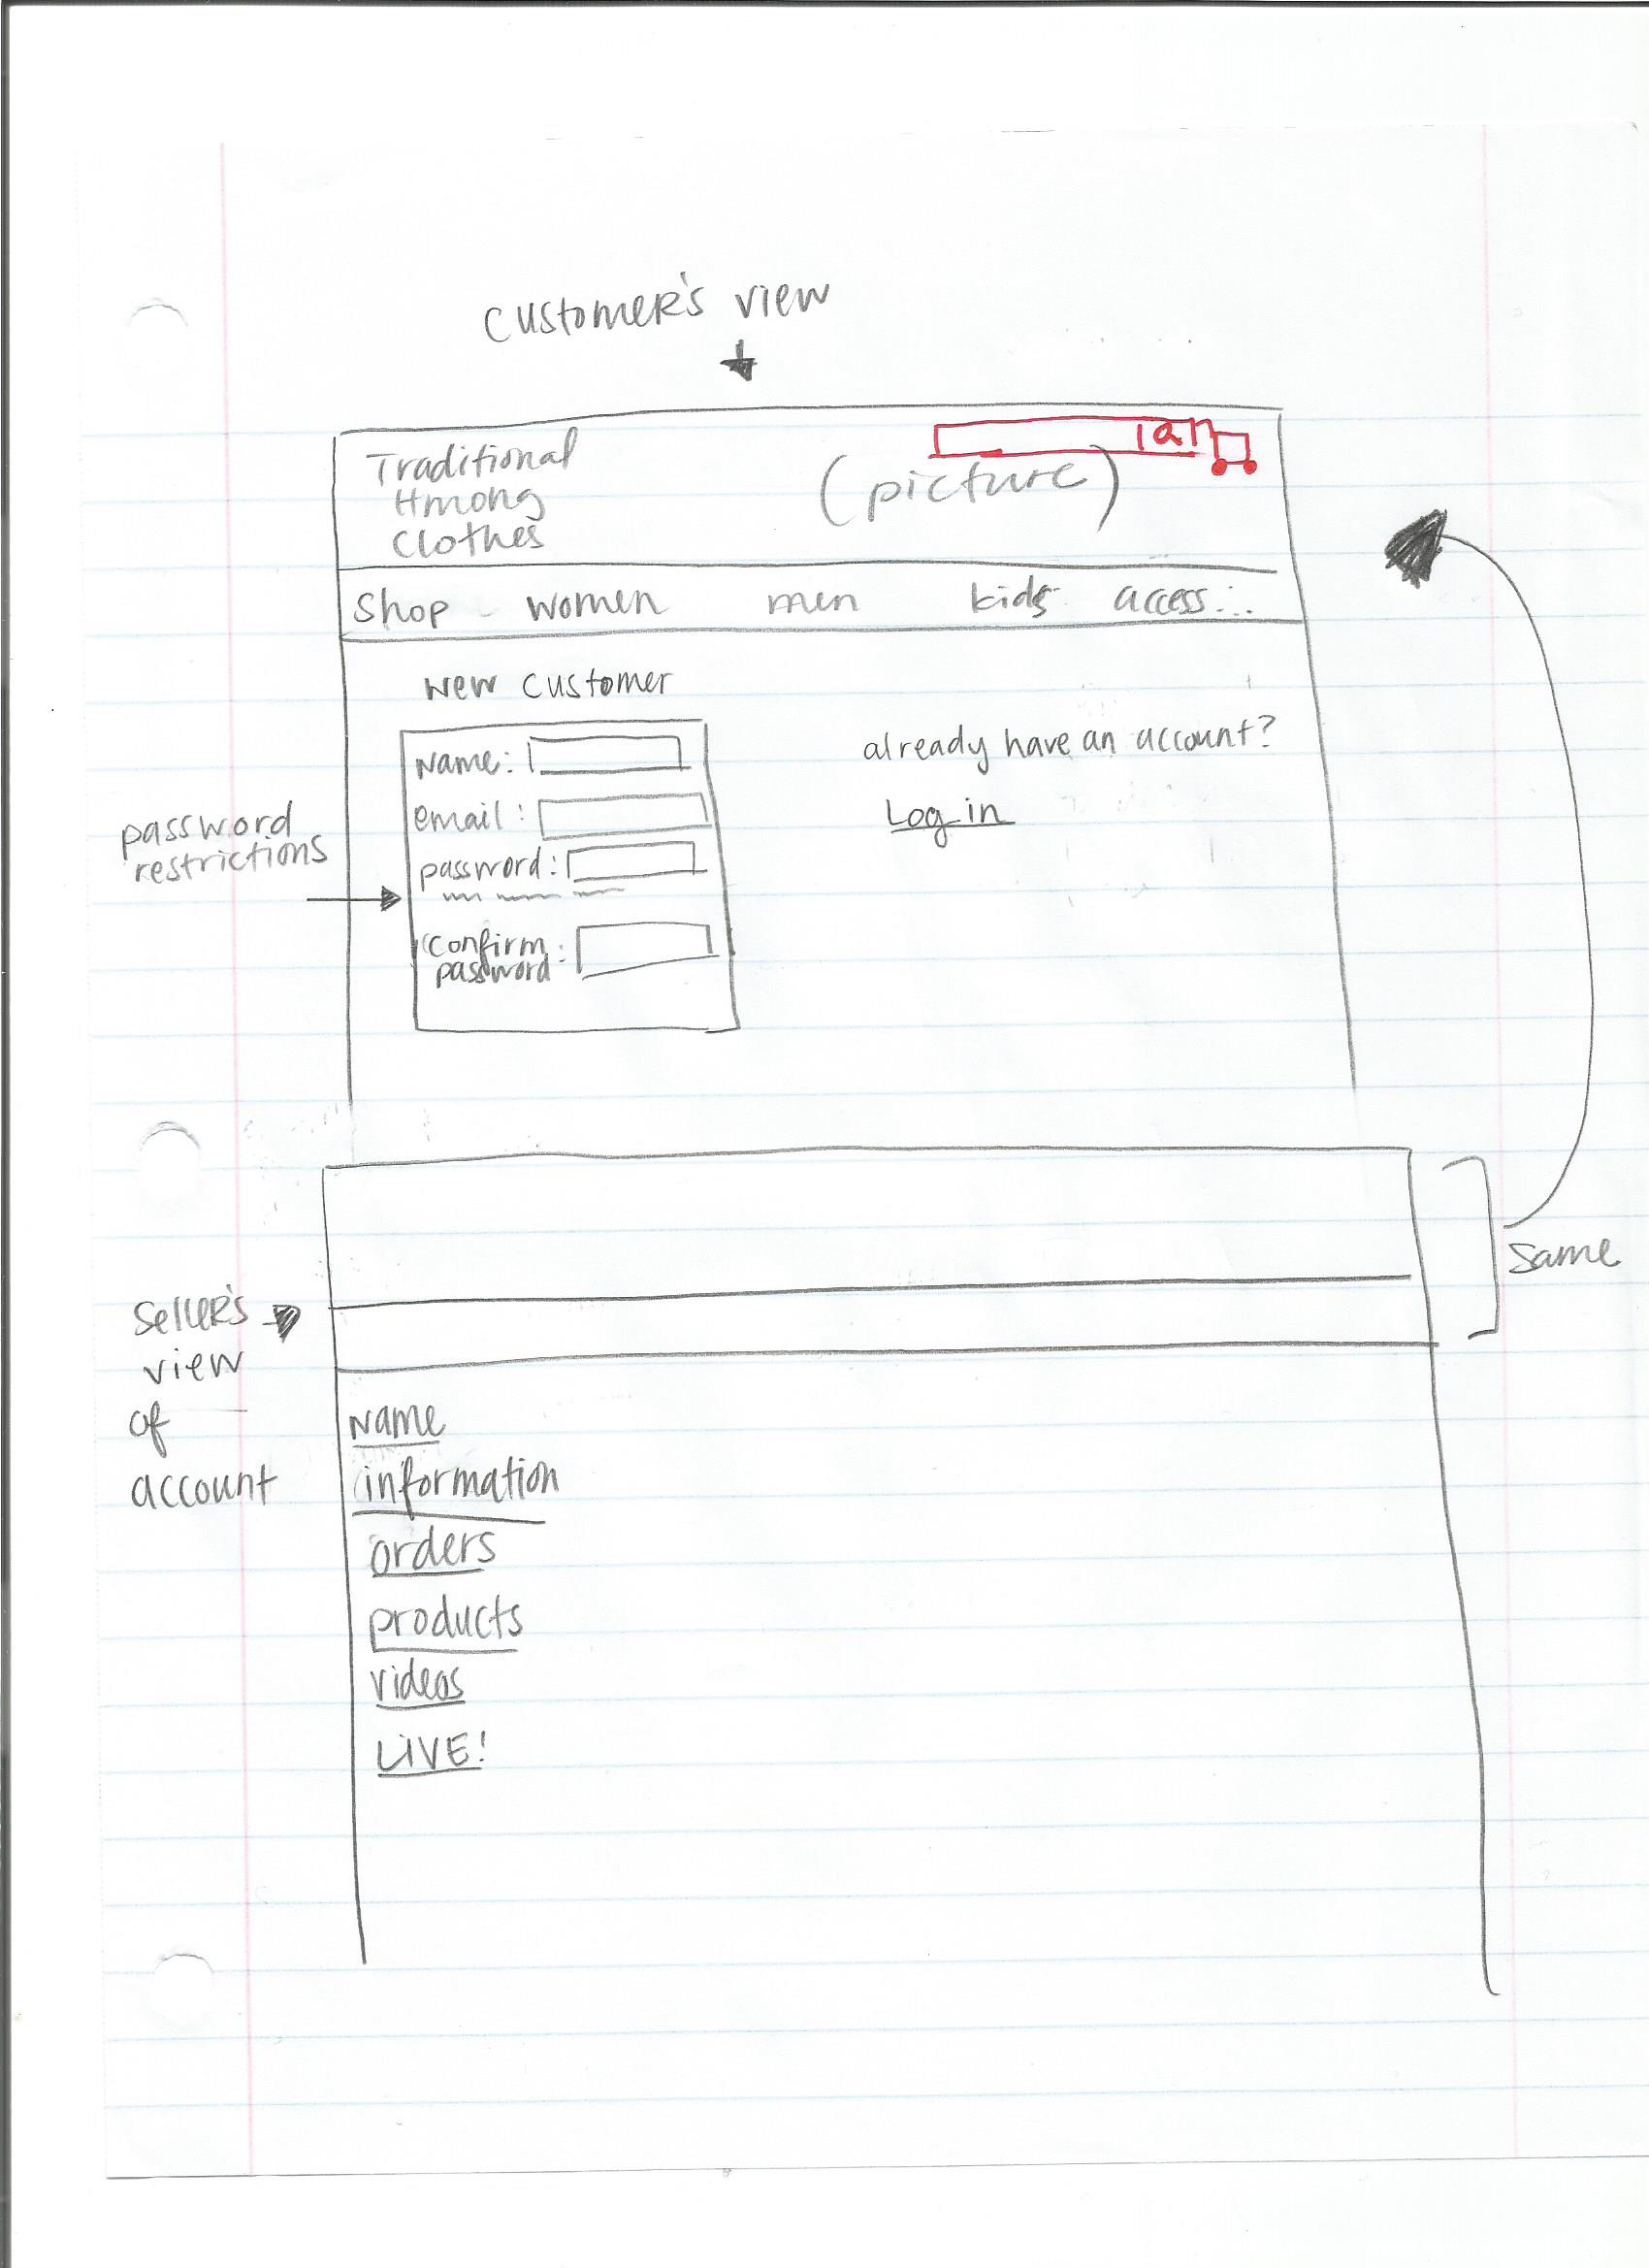 customer's view
Traditional
Hmong
Clothes
(picture)
Shop women men kids access...
new customer
Name:
email:
password:
confirm
password:
already have an account?
Log in
password
restrictions
same
Seller's
view
of
account
Name
information
orders
products
videos
LIVE!